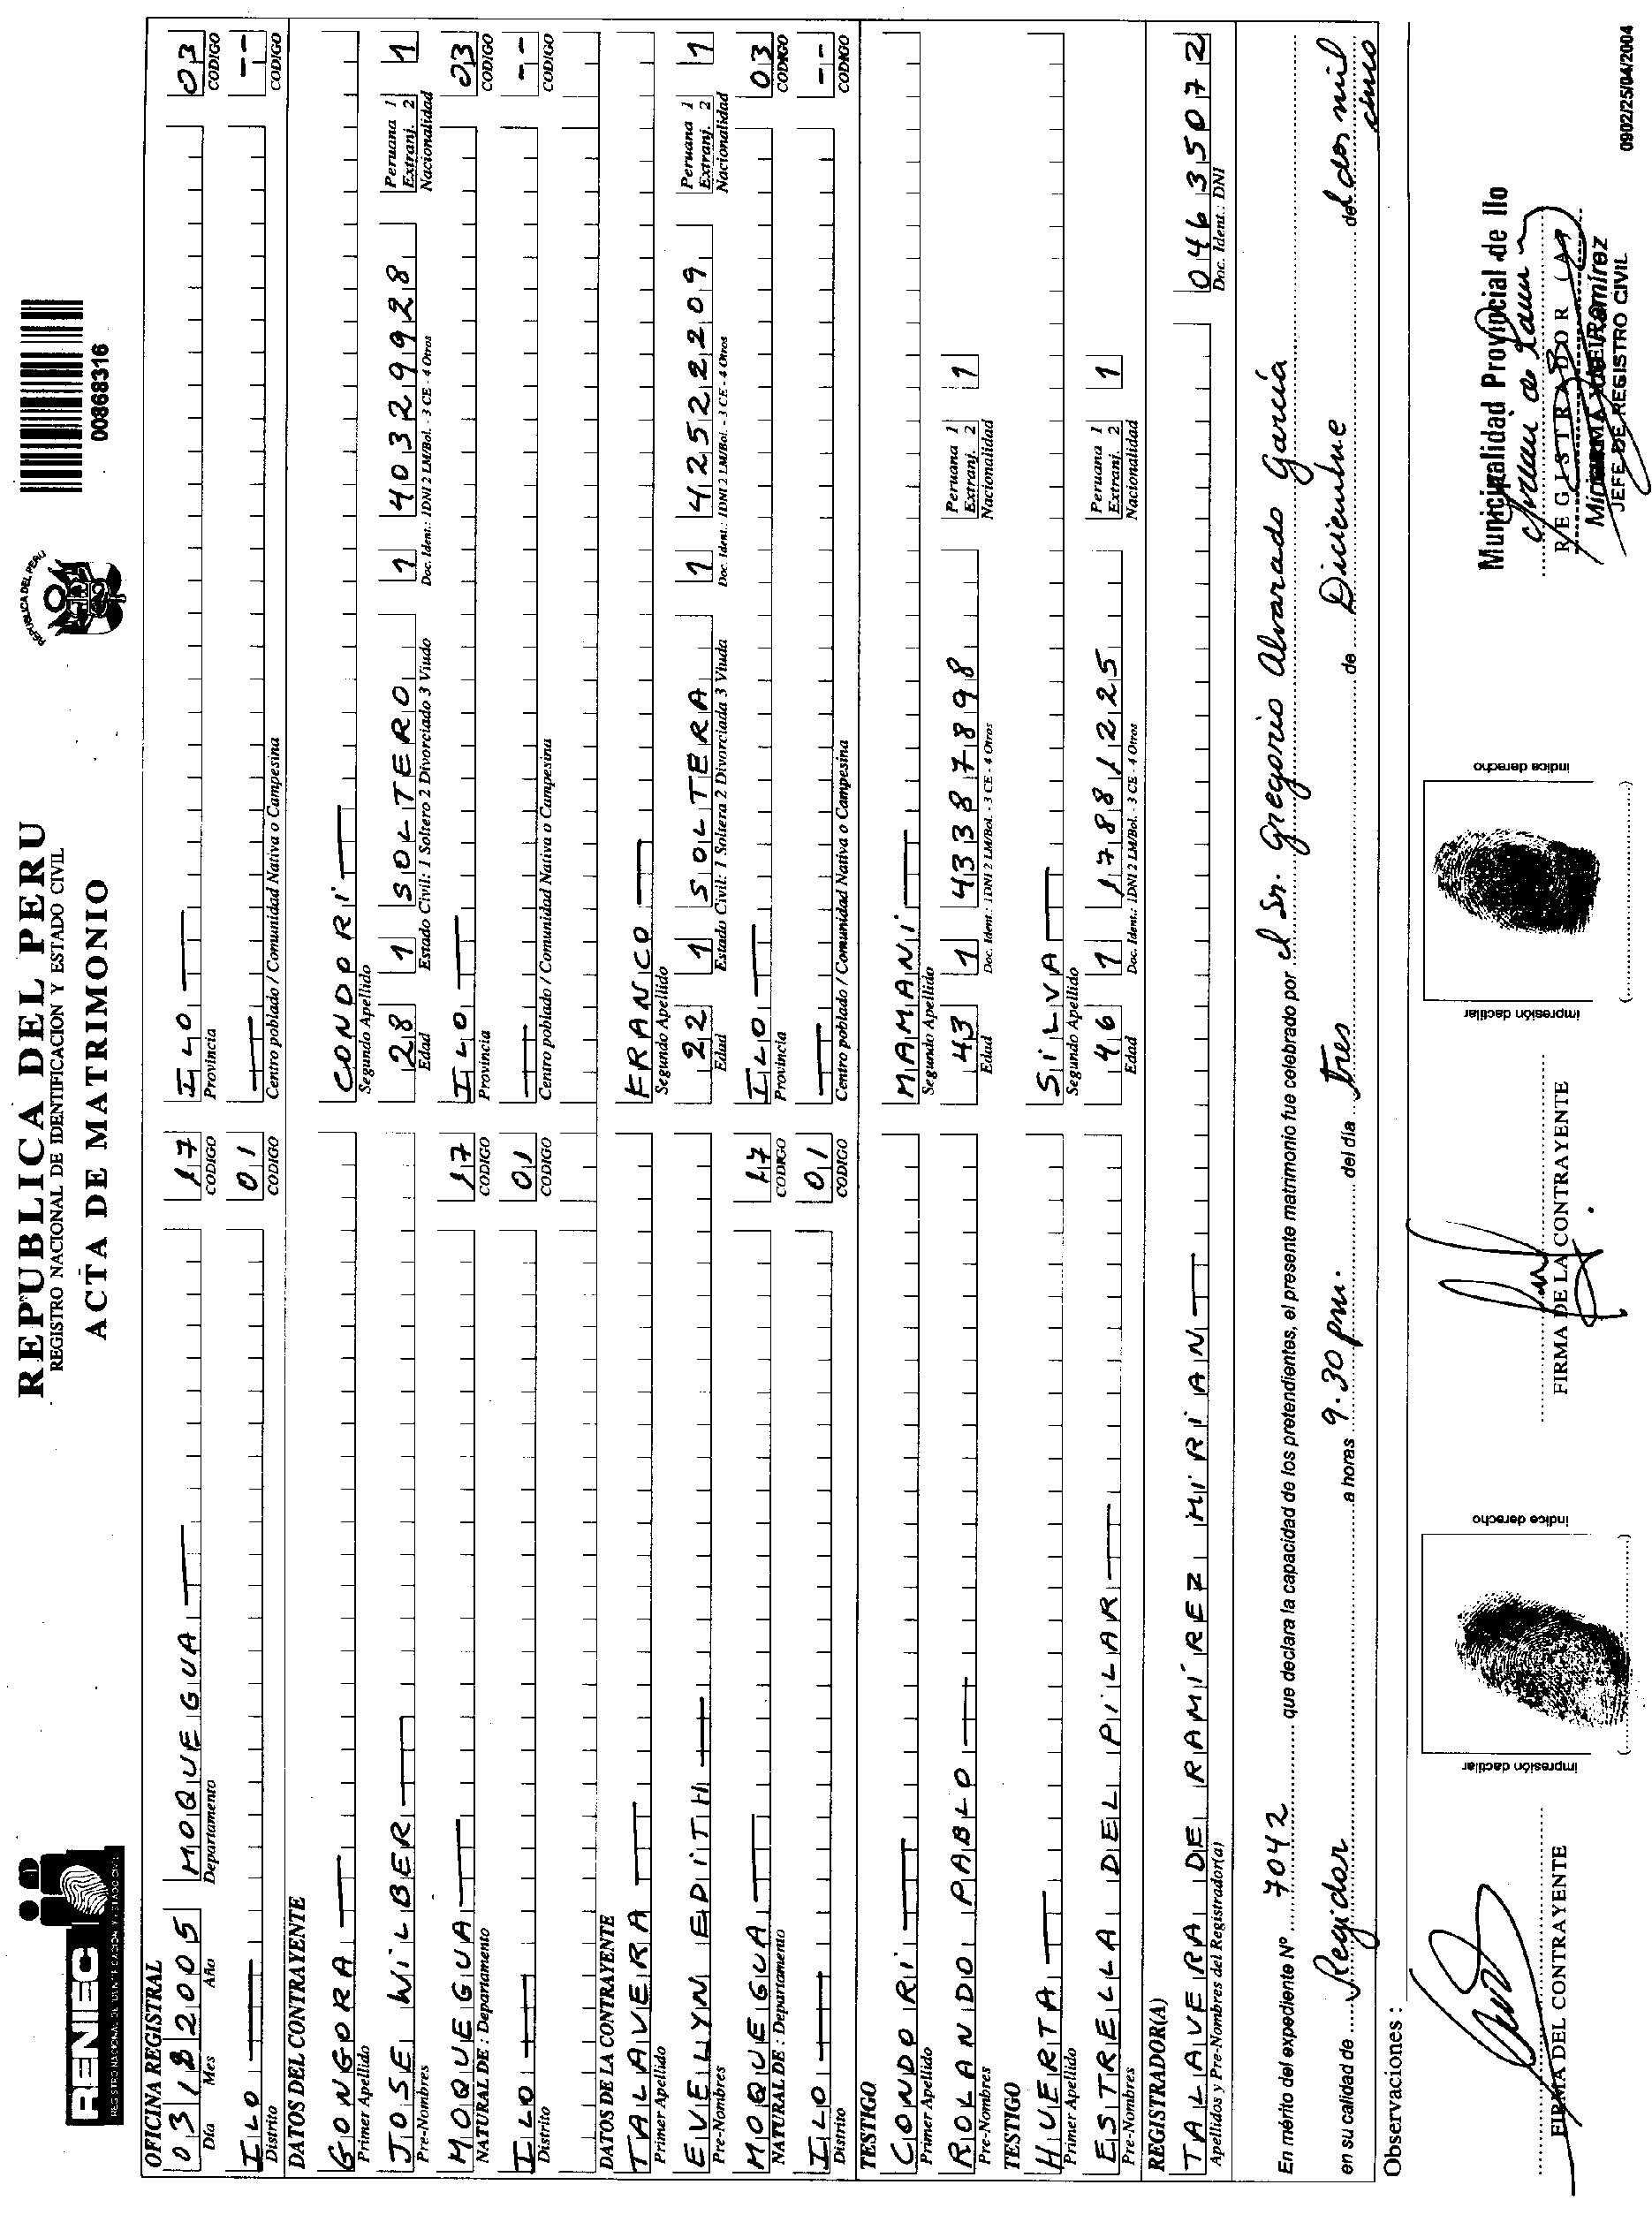 RENIEC
REGISTRO NACIONAL DE IDENTIFICACION Y ESTADO CIVIL
REPUBLICA DEL PERU
REGISTRO NACIONAL DE IDENTIFICACION Y ESTADO CIVIL
ACTA DE MATRIMONIO
REPUBLICA DEL PERU
00868316
OFICINA REGISTRAL
03 12 2005 MOQUEGUA 17 ILO 03
Día Mes Año Departamento CODIGO Provincia CODIGO
ILO 01 --
Distrito CODIGO Centro poblado / Comunidad Nativa o Campesina CODIGO
DATOS DEL CONTRAYENTE
GONGORA CONDORI
Primer Apellido Segundo Apellido
JOSE WILBER 28 1 SOLTERO 1 40329928 Peruana 1 Extranj. 2 1
Pre-Nombres Edad Estado Civil: 1 Soltero 2 Divorciado 3 Viudo Doc. Ident.: 1DNI 2 LM/Bol. - 3 CE - 4 Otros Nacionalidad
MOQUEGUA 17 ILO 03
NATURAL DE : Departamento CODIGO Provincia CODIGO
ILO 01 --
Distrito CODIGO Centro poblado / Comunidad Nativa o Campesina CODIGO
DATOS DE LA CONTRAYENTE
TALAVERA FRANCO
Primer Apellido Segundo Apellido
EVELYN EDITH 22 1 SOLTERA 1 42522209 Peruana 1 Extranj. 2 1
Pre-Nombres Edad Estado Civil: 1 Soltera 2 Divorciada 3 Viuda Doc. Ident.: 1DNI 2 LM/Bol. - 3 CE - 4 Otros Nacionalidad
MOQUEGUA 17 ILO 03
NATURAL DE : Departamento CODIGO Provincia CODIGO
ILO 01 --
Distrito CODIGO Centro poblado / Comunidad Nativa o Campesina CODIGO
TESTIGO
CONDORI MAMANI
Primer Apellido Segundo Apellido
ROLANDO PABLO 43 1 43387898 Peruana 1 Extranj. 2 1
Pre-Nombres Edad Doc. Ident.: 1DNI 2 LM/Bol. - 3 CE - 4 Otros Nacionalidad
TESTIGO
HUERTA SILVA
Primer Apellido Segundo Apellido
ESTRELLA DEL PILAR 46 1 17881225 Peruana 1 Extranj. 2 1
Pre-Nombres Edad Doc. Ident.: 1DNI 2 LM/Bol. - 3 CE - 4 Otros Nacionalidad
REGISTRADOR(A)
TALAVERA DE RAMÍREZ MIRIAN 04635072
Apellidos y Pre-Nombres del Registrador(a) Doc. Ident.: DNI
En mérito del expediente Nº 7042 que declara la capacidad de los pretendientes, el presente matrimonio fue celebrado por el Sr. Gregorio Alvarado García
en su calidad de Regidor a horas 9.30 pm. del día tres de Diciembre del dos mil cinco
Observaciones :
FIRMA DEL CONTRAYENTE
impresión dactilar
índice derecho
FIRMA DE LA CONTRAYENTE
impresión dactilar
índice derecho
Municipalidad Provincial de Ilo
REGISTRADOR (A)
Ramírez
JEFE DE REGISTRO CIVIL
0902/25/04/2004